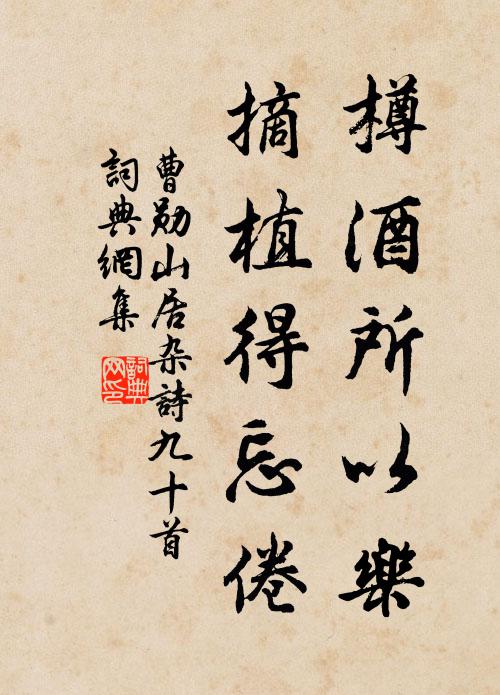 樽酒所以樂
摘植得忘倦
曹勛山居杂詩九十首
詞典網集
詞典网印